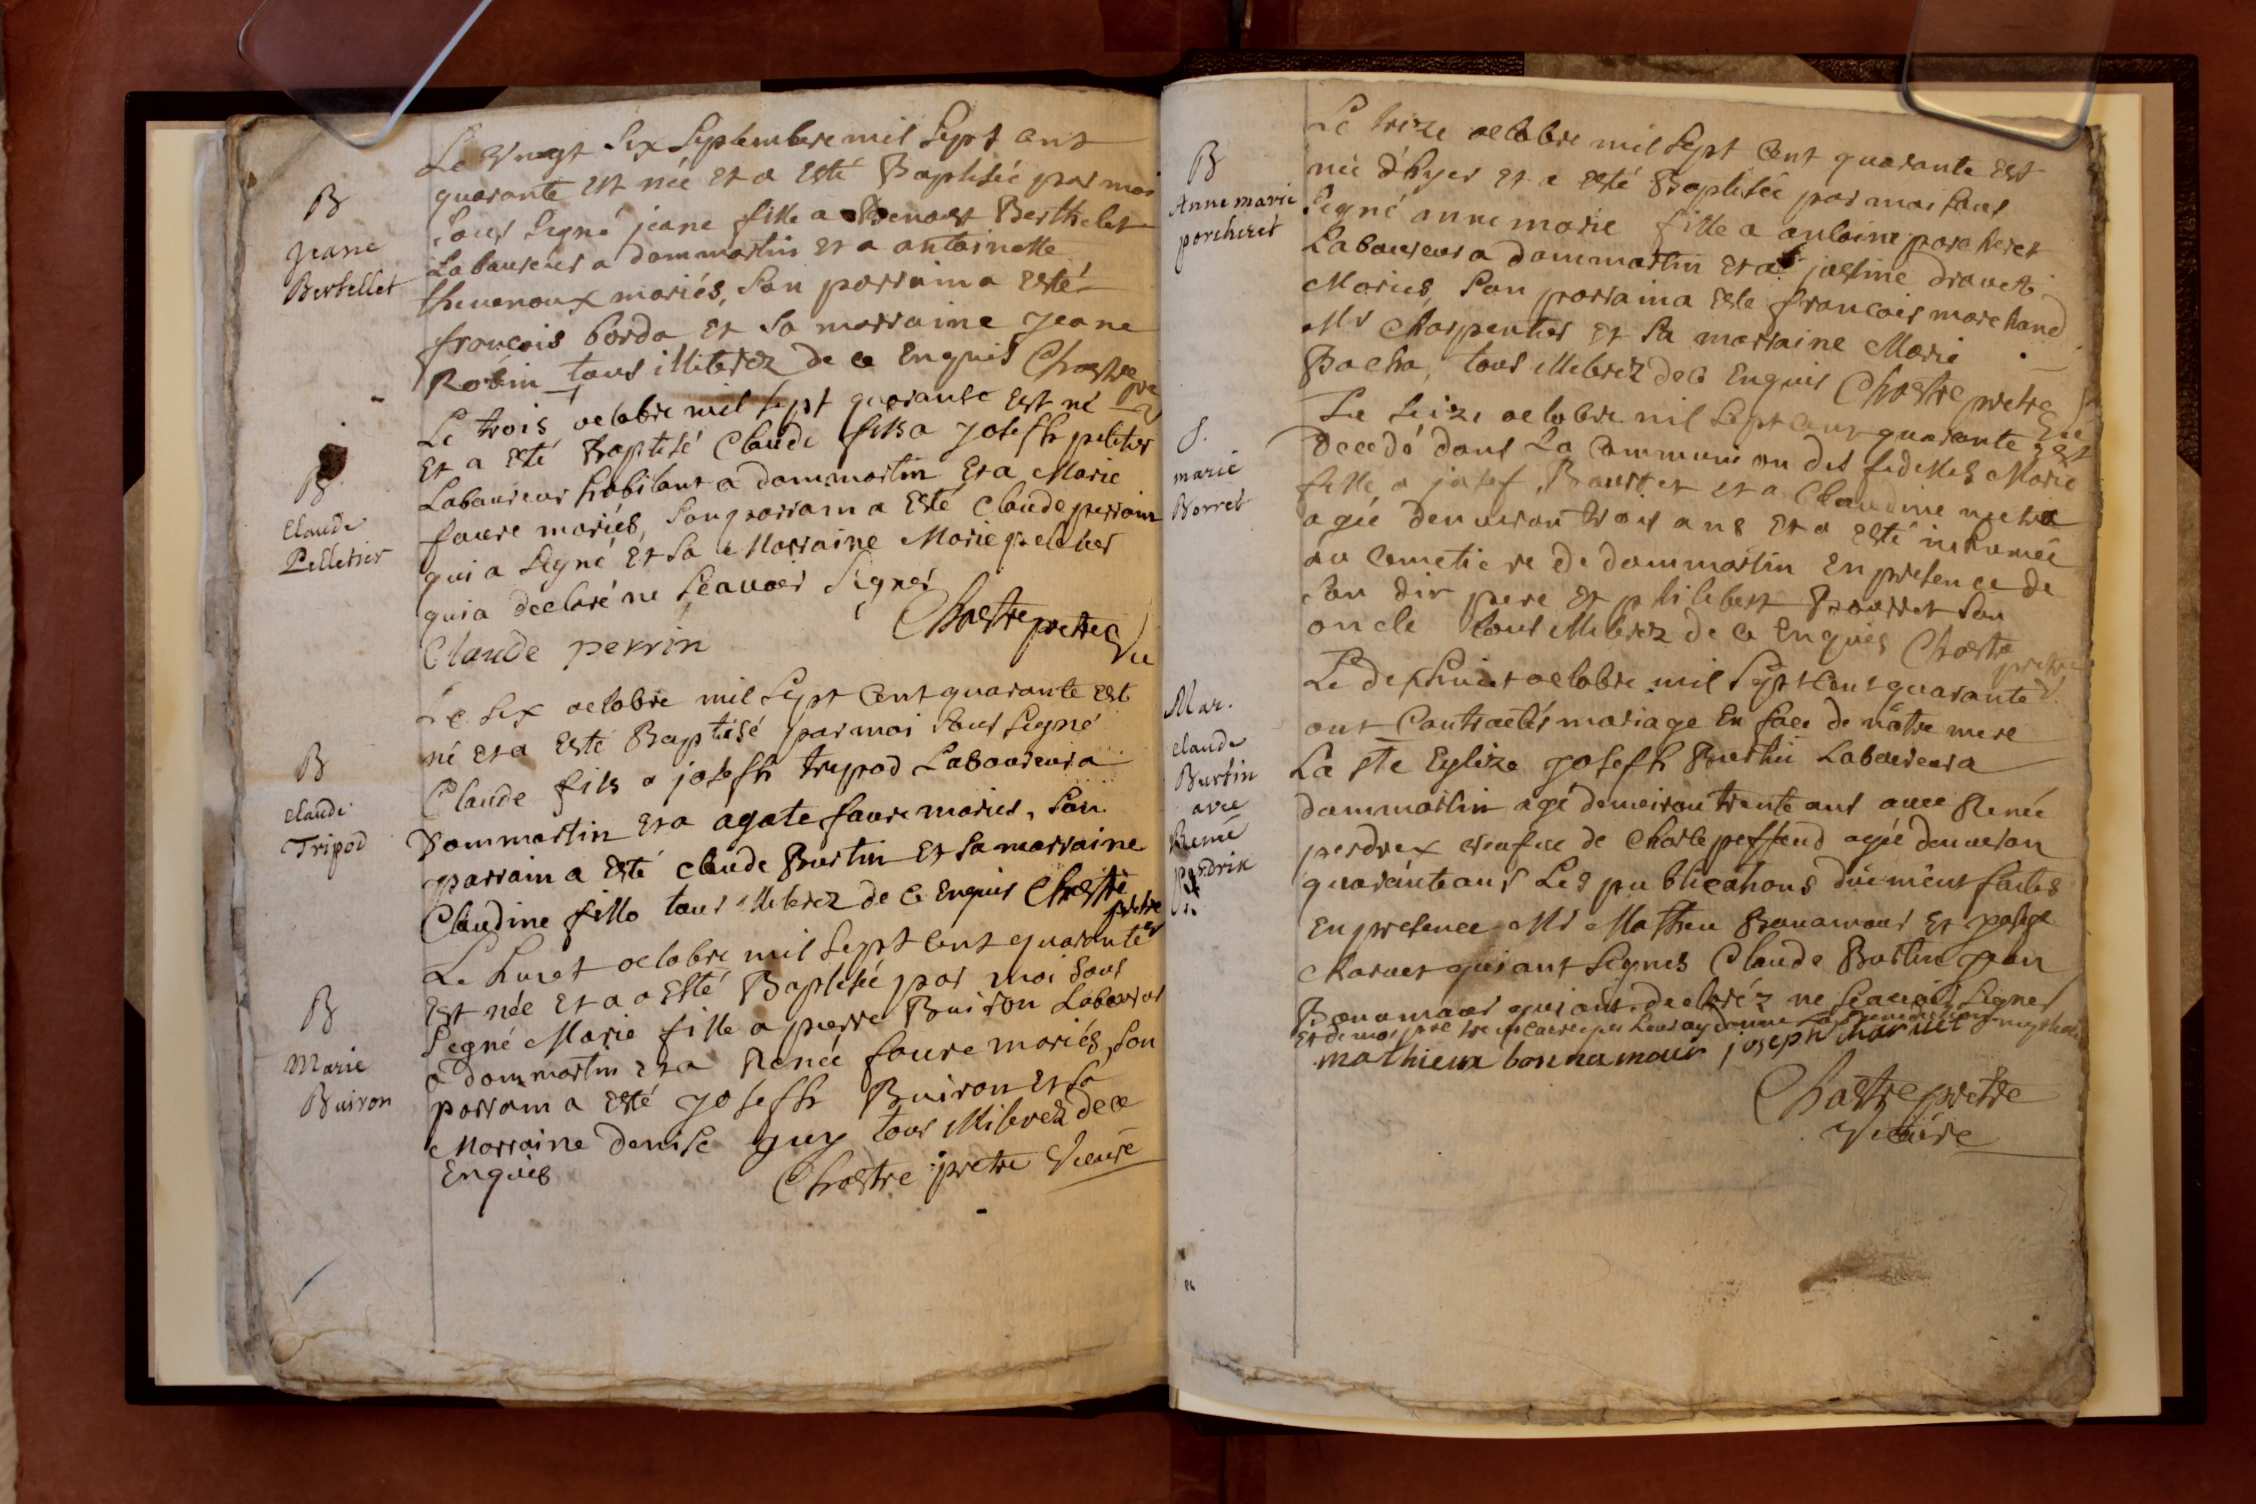 B
Jeane
Bertellet
Le vingt six Septembre mil Sept cent
quarante est née et a esté Baptisée par moi
Sous Signé jeane fille a Benoist Berthelet
Laboureur a dommartin et a antoinette
thevenoux mariés, Son parrain a esté
francois borda et Sa marraine jeane
Robin tous illiterez de ce Enquis Chastre
pre
B
Claude
Pelletier
Le trois octobre mil sept quarante est né
et a esté Baptisé Claude fils a joseph peletier
Laboureur habitant a dommartin et a Marie
faure mariés, Son parrain a esté Claude perrain
qui a Signé et Sa Marraine Marie peletier
qui a declaré ne Scavoir Signer
Claude perrin
Chastre pretre Vic
B
Claude
Tripod
Le Six octobre mil Sept Cent quarante est
né et a esté Baptisé par moi Sous Signé
Claude fils a joseph trypod Laboureur a
Dommartin et a agate faure mariés, Son
parrain a esté Claude Burtin et Sa marraine
Claudine fillo tous illiterez de ce Enquis Chastre
pretre
B
Marie
Buiron
Le huict octobre mil Sept Cent quarante
Est née et a a esté Baptisée par moi Sous
Segné Marie fille a pierre Buiron Laboureur
a dommartin et a Renée faure mariés, Son
parrain a esté joseph Buiron et Sa
Marraine denise guy tous illiterez de ce
Enquis
Chastre pretre Vicaire
B
Anne marie
porcheret
Le trize octobre mil Sept Cent quarante Est
née d'hyer et a esté Baptisée par moi Sous
Segné anne marie fille a antoine porcheret
Laboureur a dommartin et a justine drouet
Mariés, Son parrain a este francois marchand
Mr Charpentier et Sa marraine Marie
Bacha, tous illiterez de ce Enquis Chastre pretre
Vic
S.
marie
Borret
Le Seize octobre mil Sept Cent quarante est
Decedé dans La Communion des fidelles Marie
fille a josef Bourret et a Claudine
agée denviron trois ans et a esté inhumée
au Cemetiere de dommartin en presence de
Son dit pere et philibert Bourret Son
oncle tous illiterez de ce Enquis Chastre
pretre
Mar.
claude
Burtin
avec
Renée
perdrix
Le dix huict octobre mil Sept Cent quarante
ont Contractés mariage En face de nôtre mere
La Ste Eglize joseph Burtin Laboureur a
dommartin agé denviron trente ans avec Renée
perdrix veufve de Charle peffaud agée denviron
quarante ans Les publications düement faites
En presence Mr Mathieu Bonamour et joseph
Charnet qui ont Segnés Claude Burtin jean
Bonamour qui ont declaréz ne Scavoir Signer
mathieu bonnamour joseph charnet
Chastre pretre
Vicaire